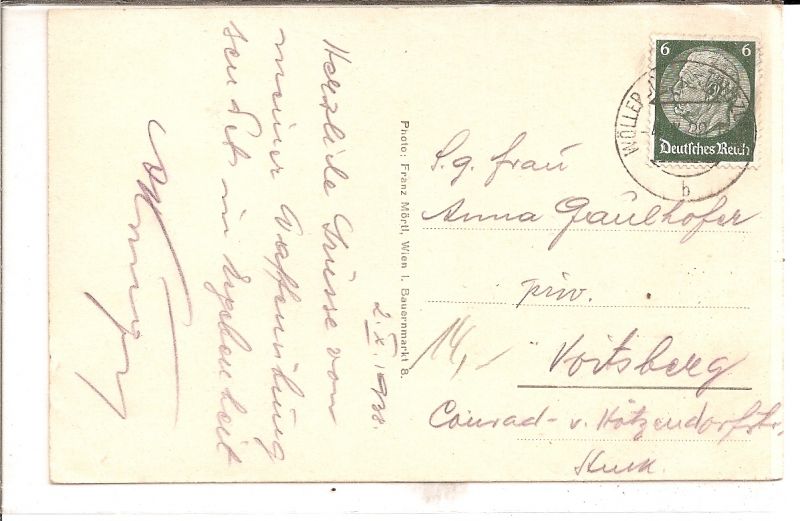 Herzliche Grüsse von
meiner Waffenübung
sendet in Ergebenheit
2. X. 1938.
Photo: Franz Mörtl, Wien I. Bauernmarkt 8.
6 6
Deutsches Reich
WÖLLER
b
S. g. Frau
Anna Gaulhofer
priv.
14,-
Voitsberg
Conrad- v. Hötzendorfstr.